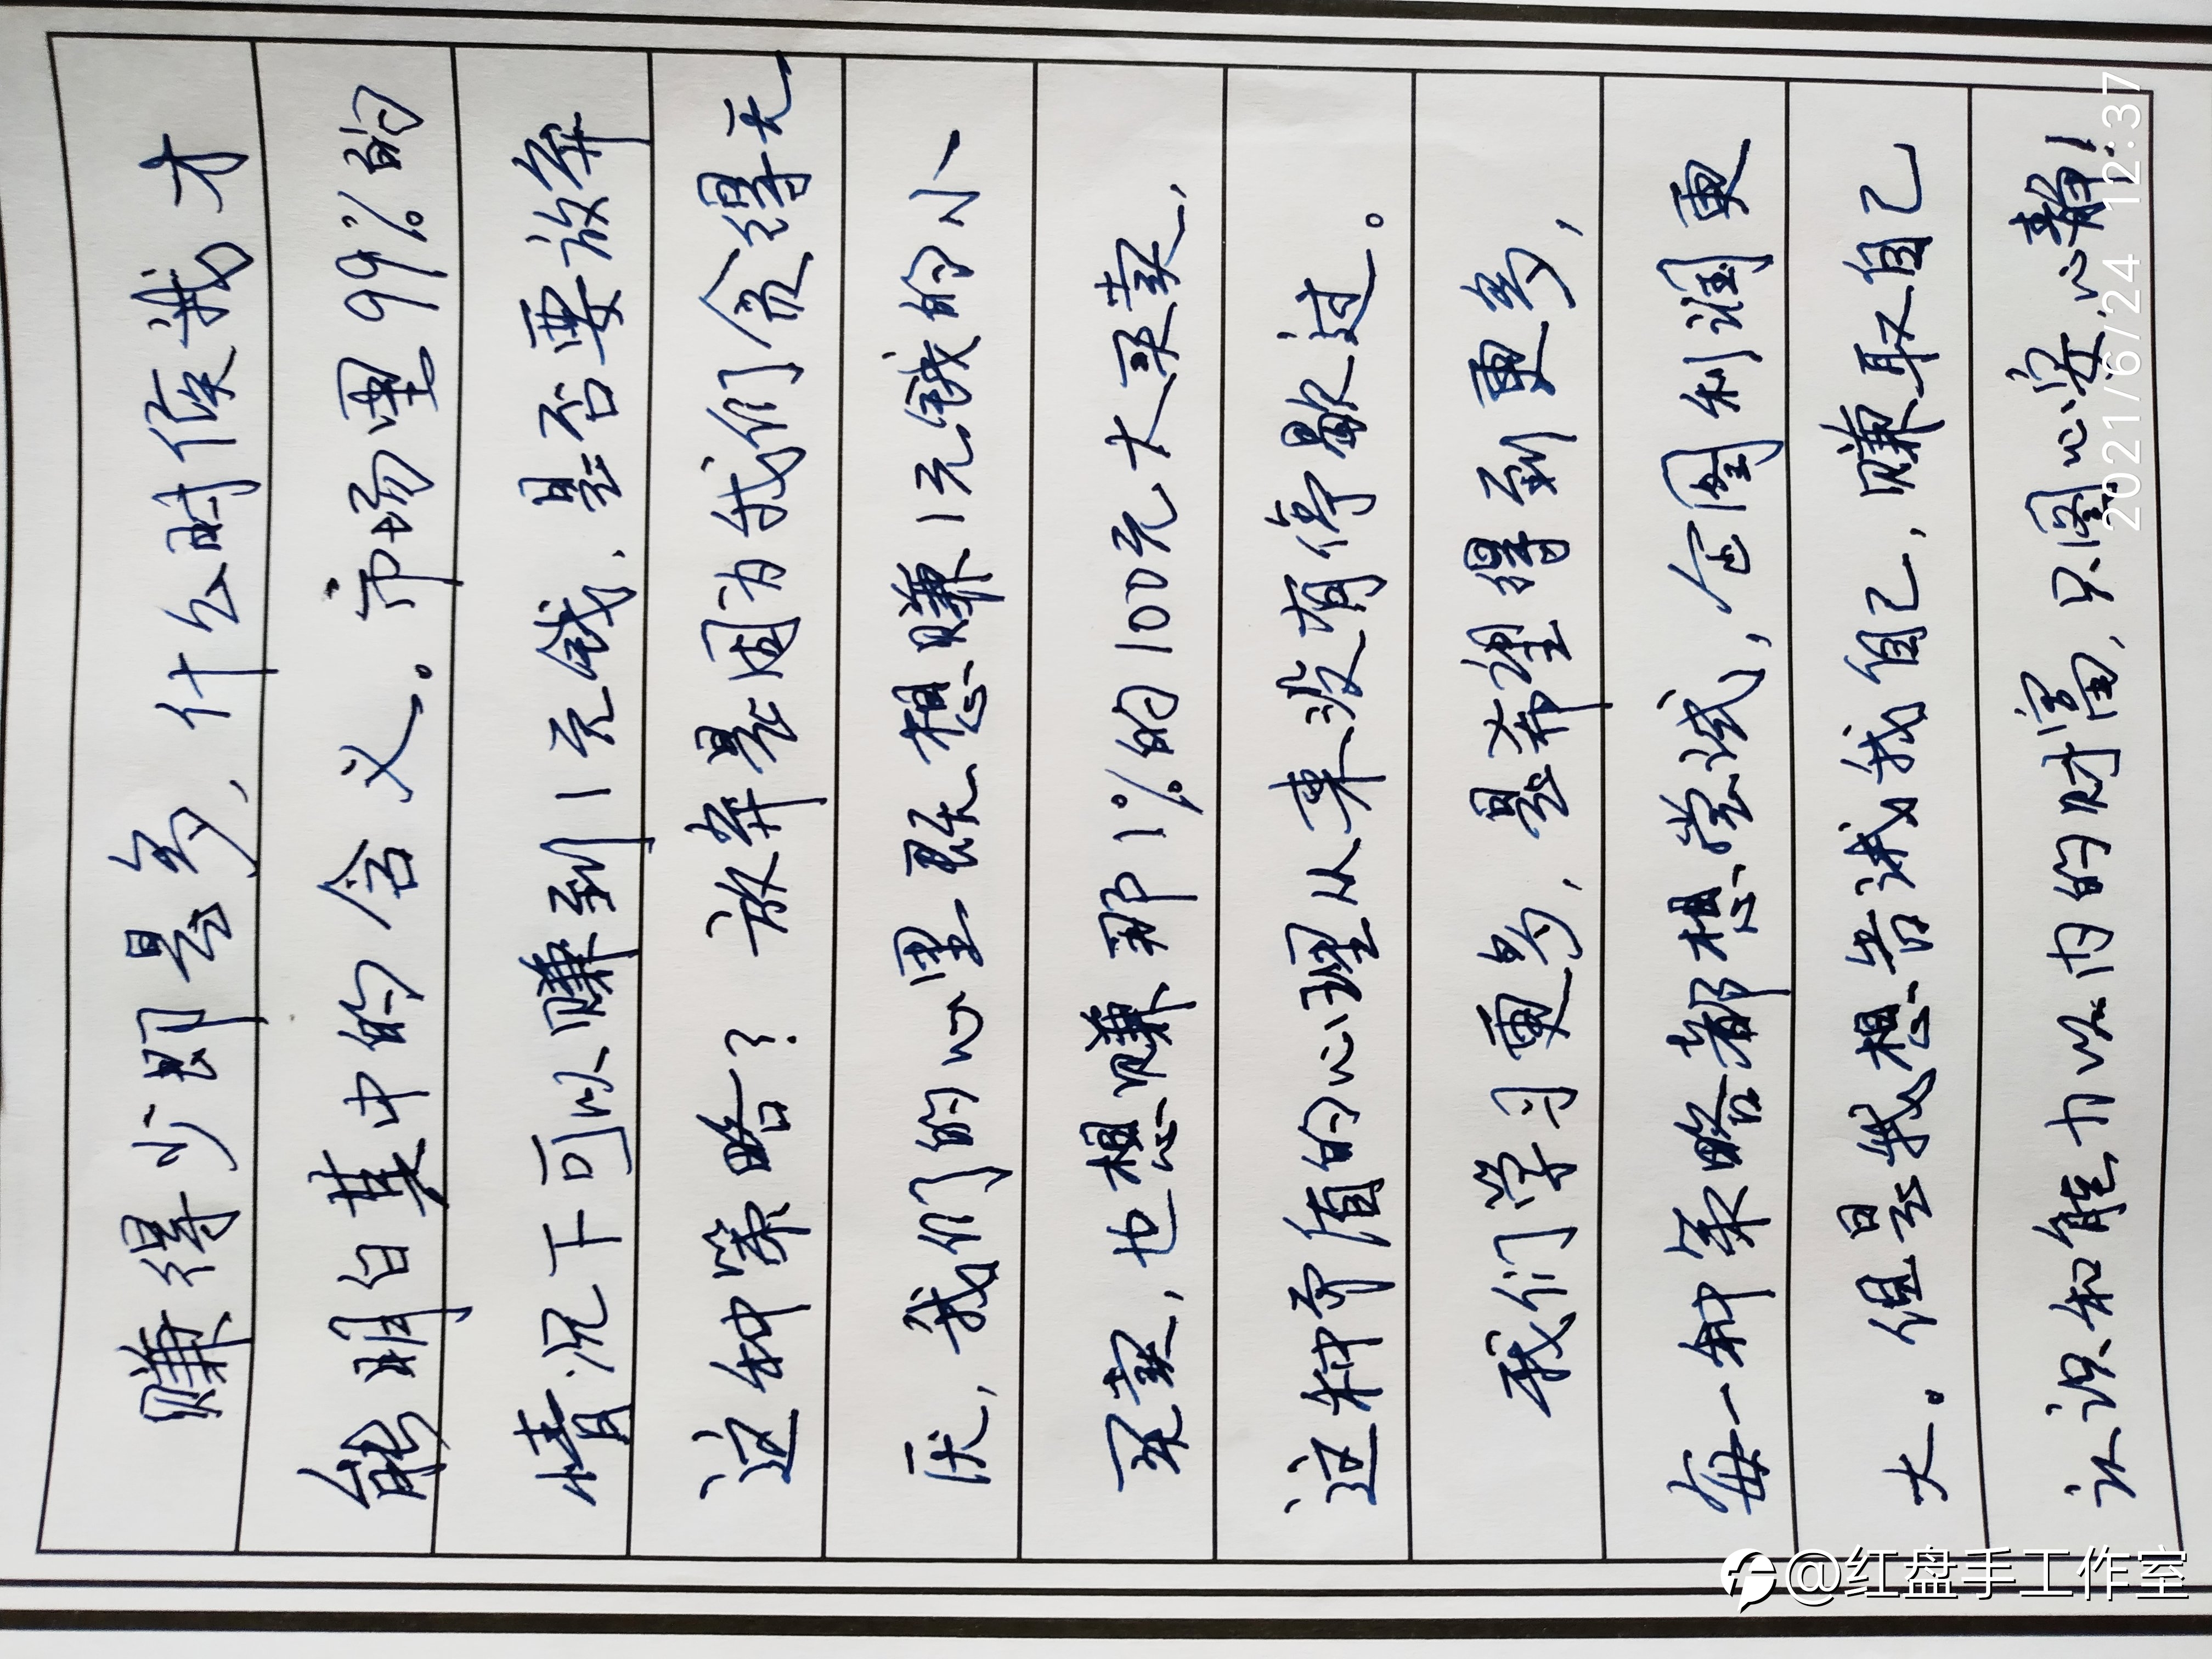 赚得少即是多，什么时候我才
能明白其中的含义。市场里99%的
情况下可以赚到1元钱，是否要放弃
这种策略？放弃是因为我们贪得无
厌，我们的心里既想赚1元钱的小
买卖，也想赚那1%的100元大买卖，
这种矛盾的心理从来没有停歇过。
我们学习更多，是希望得到更多，
每一种策略都想尝试，企图利润更
大。但是我想告诫我自己，赚取自己
认识和能力以内的财富，只图心安心静！
2021/6/24 12:37
@红盘手工作室